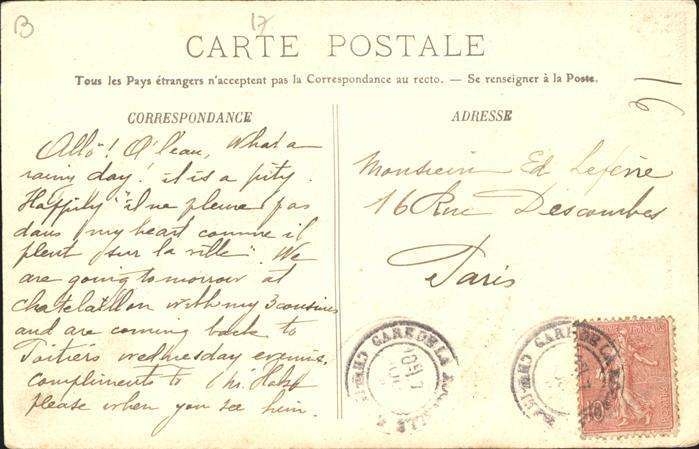 B
17
CARTE POSTALE
Tous les Pays étrangers n'acceptent pas la Correspondance au recto. — Se renseigner à la Poste.
CORRESPONDANCE
Allô! O'leau, What a
rainy day! it is a pity.
Happily "il ne pleure pas
dans my heart comme il
pleut sur la ville". We
are going tomorrow at
Chatelaillon with my 3 cousins
and are coming back to
Poitiers wednesday evening.
Compliments to
please when you see him.
ADRESSE
Monsieur Ed Lefèvre
16 Rue Descombes
Paris
GARE DE LA
GARE DE LA